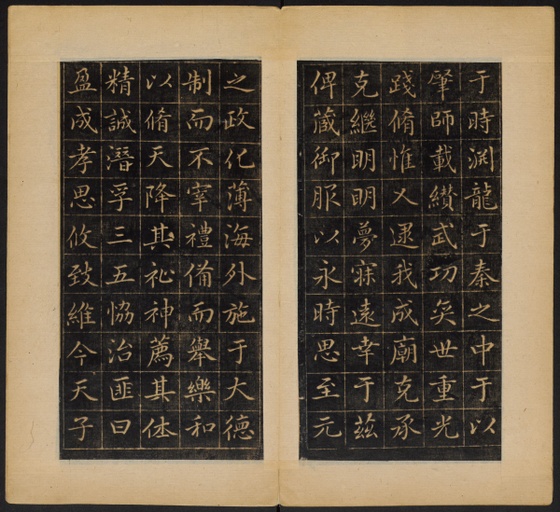 于時渊龍于秦之中于以
肇師載纘武功奕世重光
踐脩惟乂逮我成廟克承
克繼明明夢寐遠幸于茲
俾蔵御服以永時思至元
之政化薄海外施于大德
制而不宰禮俻而舉樂和
以脩天降其祉神薦其休
精誠潛孚三五恊治匪曰
盈成孝思攸致維今天子